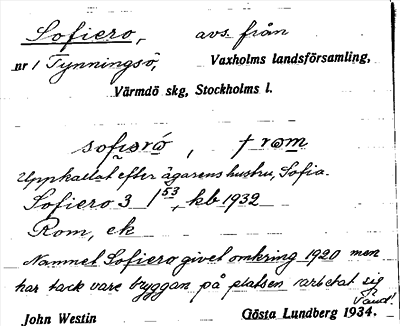 Sofiero, avs. från
nr 1 Tynningsö, Vaxholms landsförsamling,
Värmdö skg, Stockholms l.
sofiərò, † rωm
Uppkallat efter ägarens hustru, Sofia.
Sofiero 3 1 53, kb 1932
Rom, ek
Namnet Sofiero givet omkring 1920 men
har tack vare bryggan på platsen arbetat sig
Vänd!
John Westin Gösta Lundberg 1934.